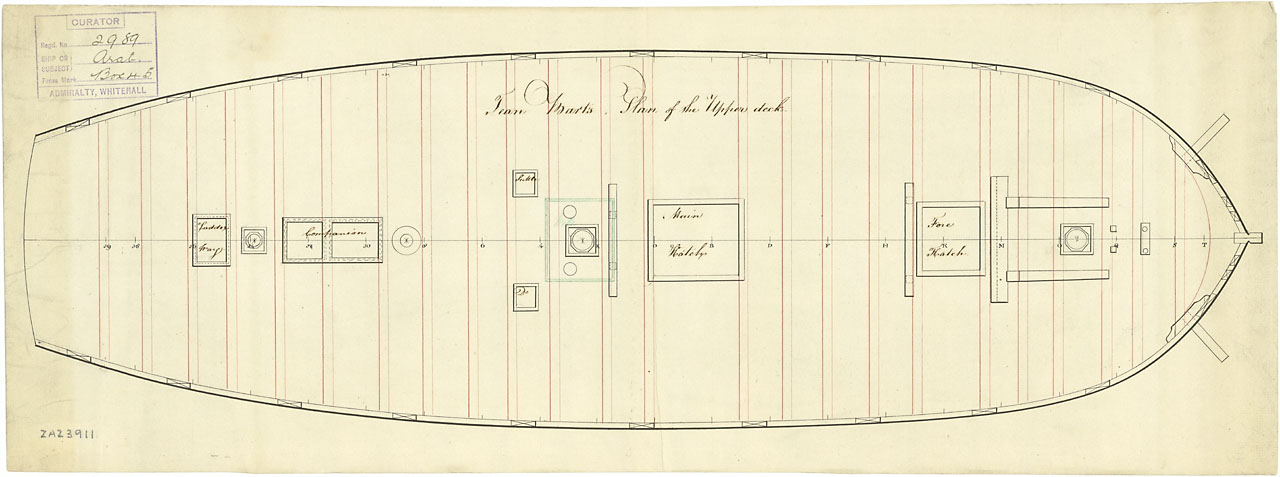 CURATOR
Regd. No. 2989
SHIP OR Arab.
SUBJECT
Press Mark Box 45
ADMIRALTY, WHITEHALL
Jean Barts. Plan of the Upper deck.
Scuttle
Ladder
Way
Companion
Main
Hatch
Fore
Hatch
Do
29 26 24 20 8 6 4 D B D F H K M O Q S T
ZAZ3911